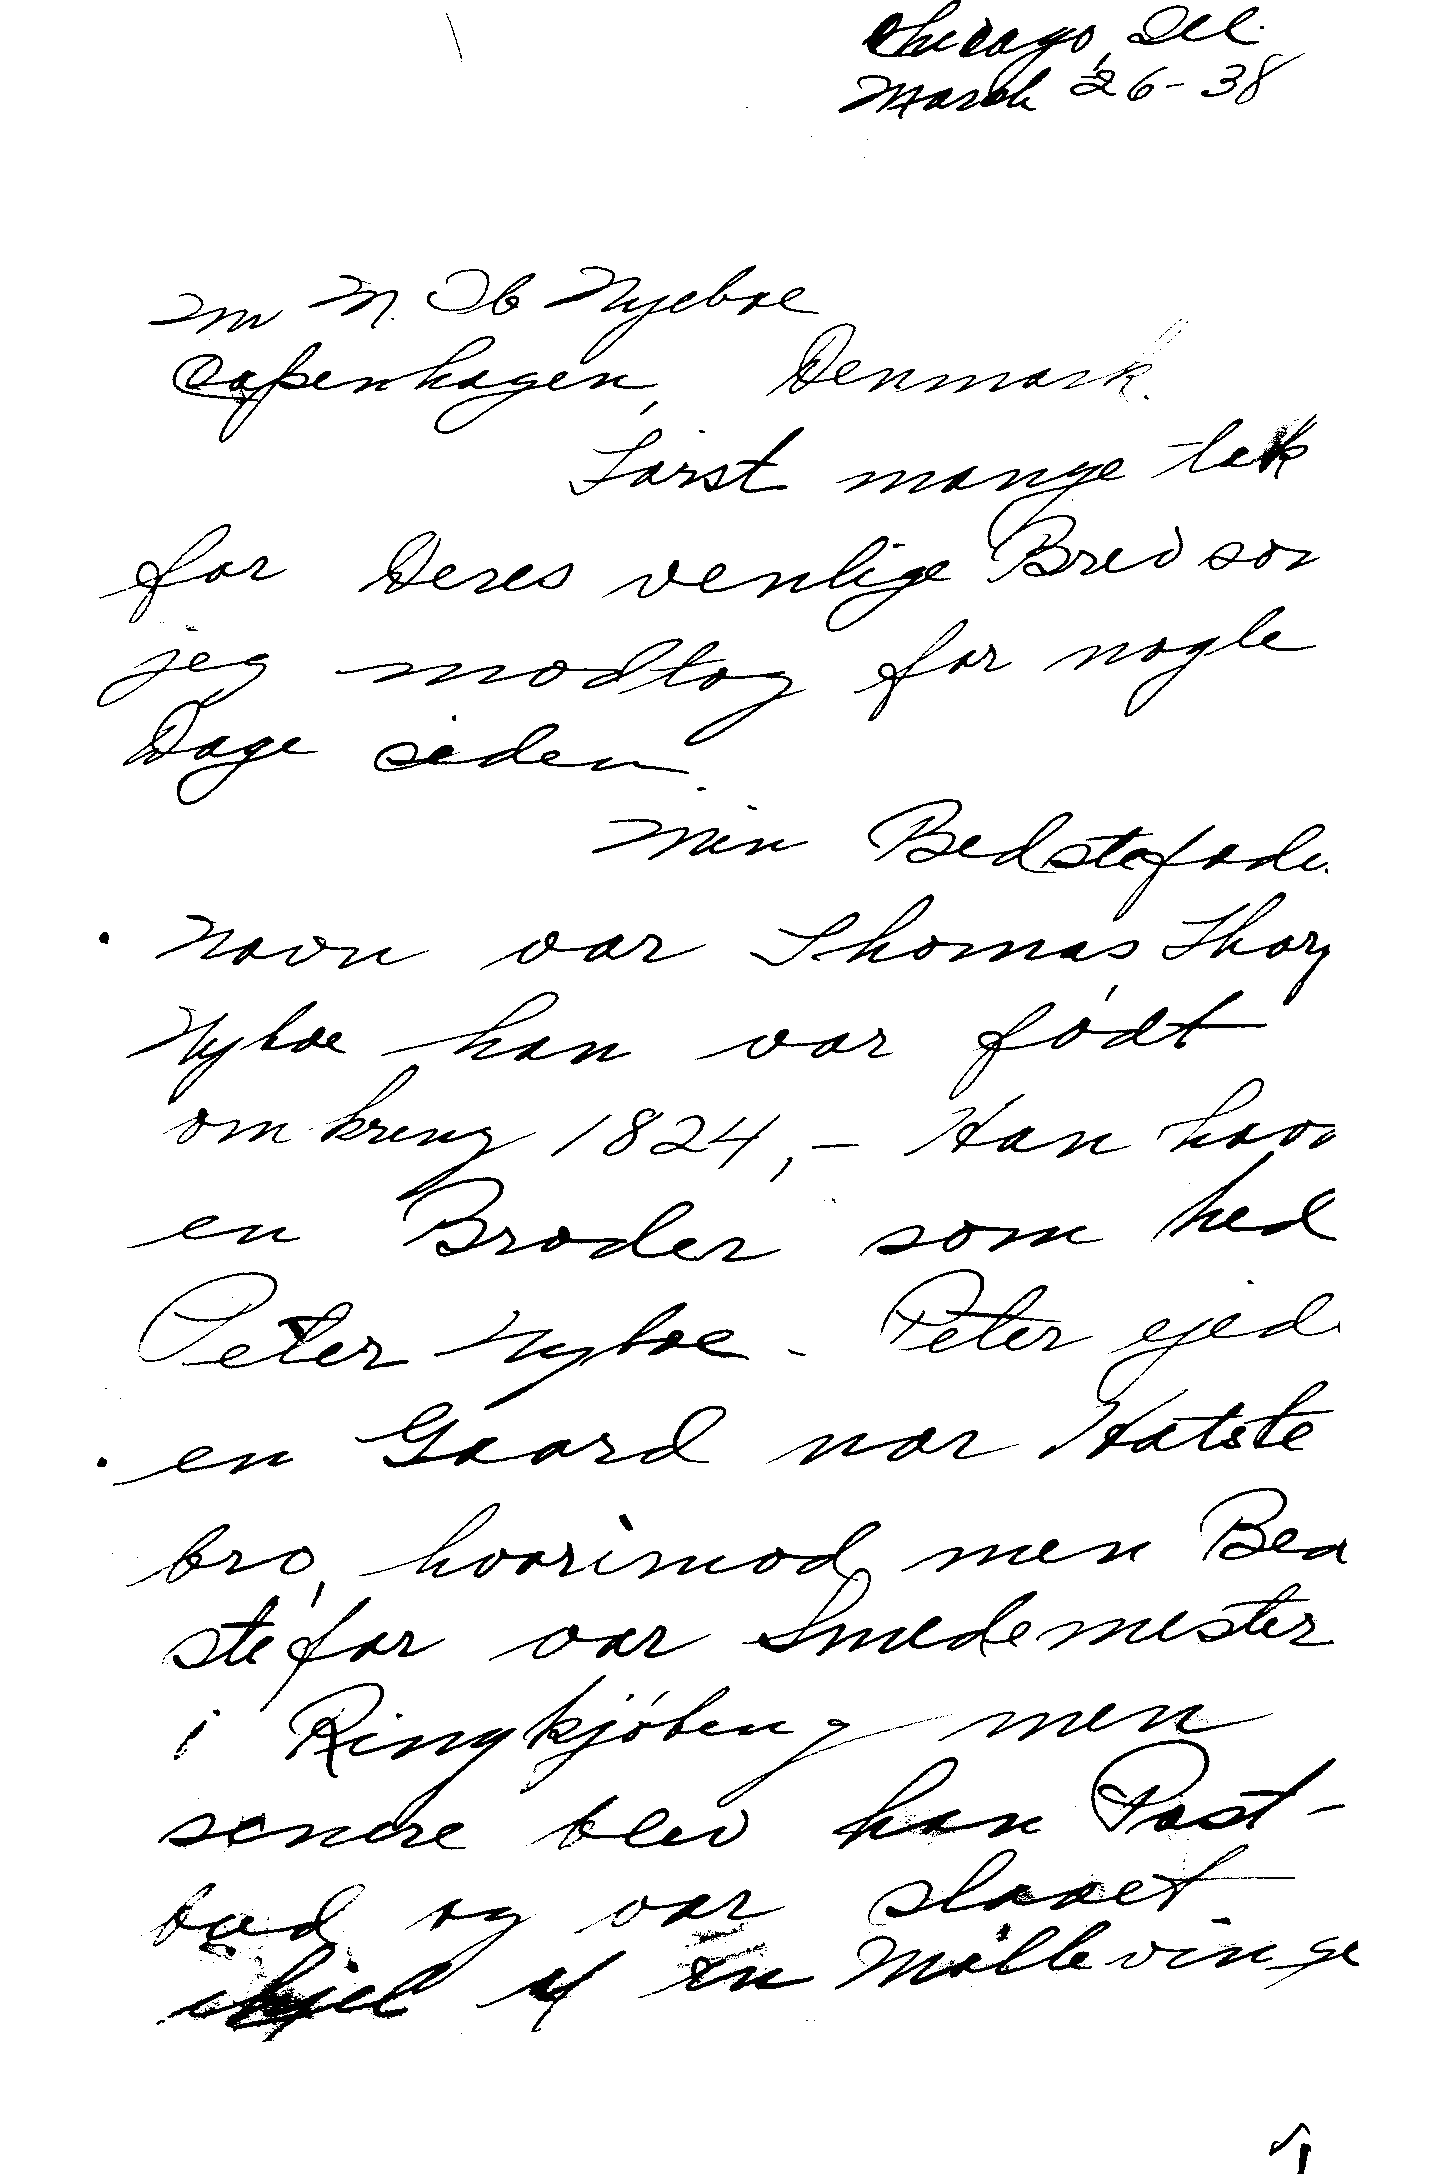 Chicago, Ill.
March 26-38
Mr M. Ib Nyeboe
Copenhagen, Denmark.
Først mange tak
for Deres venlige Brev som
jeg modtog for nogle
Dage siden.
Min Bedstefade
Navn var Thomas Thorg
Nyboe han var født
omkreng 1824,- Han havd
en Broder som hed
Peter Nyboe - Peter ejed
en Gaard nar Holste
bro, hvorimod men Bed
stefar var Smedemester
i Ringkjøbeng men
senere blev han Post-
bud og var slaaet
ihjel af en Møllevinge